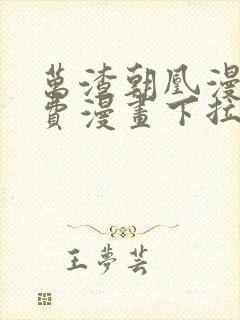 萬渣朝凰漫
費漫畫下拉
王夢芸